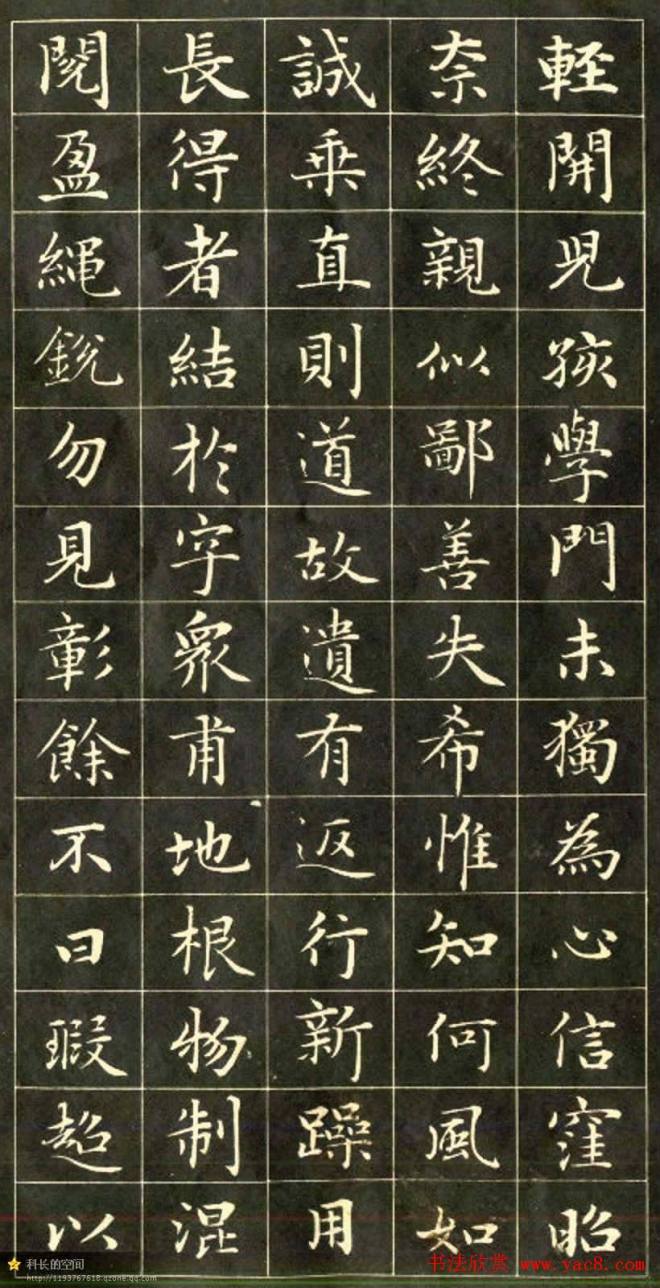 軽開児孩學門未獨為心信窪昭
奈終親似鄙善失希惟知何風如
誠乗直則道故遺有返行新躁用
長得者結於字眾甫地根物制混
閱盈繩銳勿見彰餘不曰瑕超以
科长的空间
http://1193767618.qzone.qq.com
书法欣赏 www.yac8.com